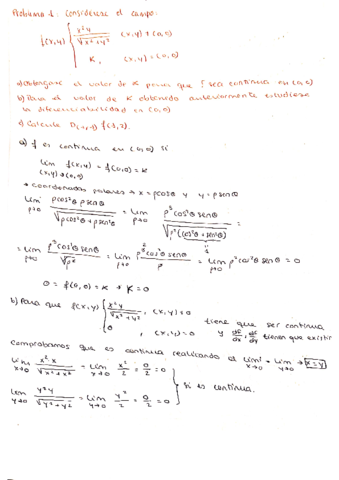 Problema 1. Considérese el campo:
f(x,y) { x²y / √(x²+y²) (x,y) ≠ (0,0)
K, (x,y) = (0,0)
a) Obténgase el valor de K para que f sea continua en (0,0)
b) Para el valor de K obtenido anteriormente estúdiese
la diferenciabilidad en (0,0)
c) Calcule f(1,2).
a) f es continua en (0,0) si
lim (x,y)→(0,0) f(x,y) = f(0,0) = K
→ Coordenadas polares → x = ρcosθ y y = ρsenθ
lim ρ→0 ρcos²θ ρsenθ / √(ρcos²θ + ρsen²θ) = lim ρ→0 ρ³cos²θ senθ / √(ρ²(cos²θ + sen²θ)) =
1
= lim ρ→0 ρ³cos²θ senθ / √ρ² = lim ρ→0 ρ³cos²θ senθ / ρ = lim ρ→0 ρ²cos²θ senθ = 0
0 = f(0,0) = K → K = 0
b) Para que f(x,y) { x²y / √(x²+y²), (x,y) ≠ 0
0, (x,y) = 0 tiene que ser continua
y df/dx, df/dy tienen que existir
Comprobamos que es continua realizando el lim x→0 = lim y→0 → x=y
lim x→0 x²x / √(x²+x²) = lim x→0 x²/2 = 0/2 = 0
lim y→0 y²y / √(y²+y²) = lim y→0 y²/2 = 0/2 = 0 } si es continua.